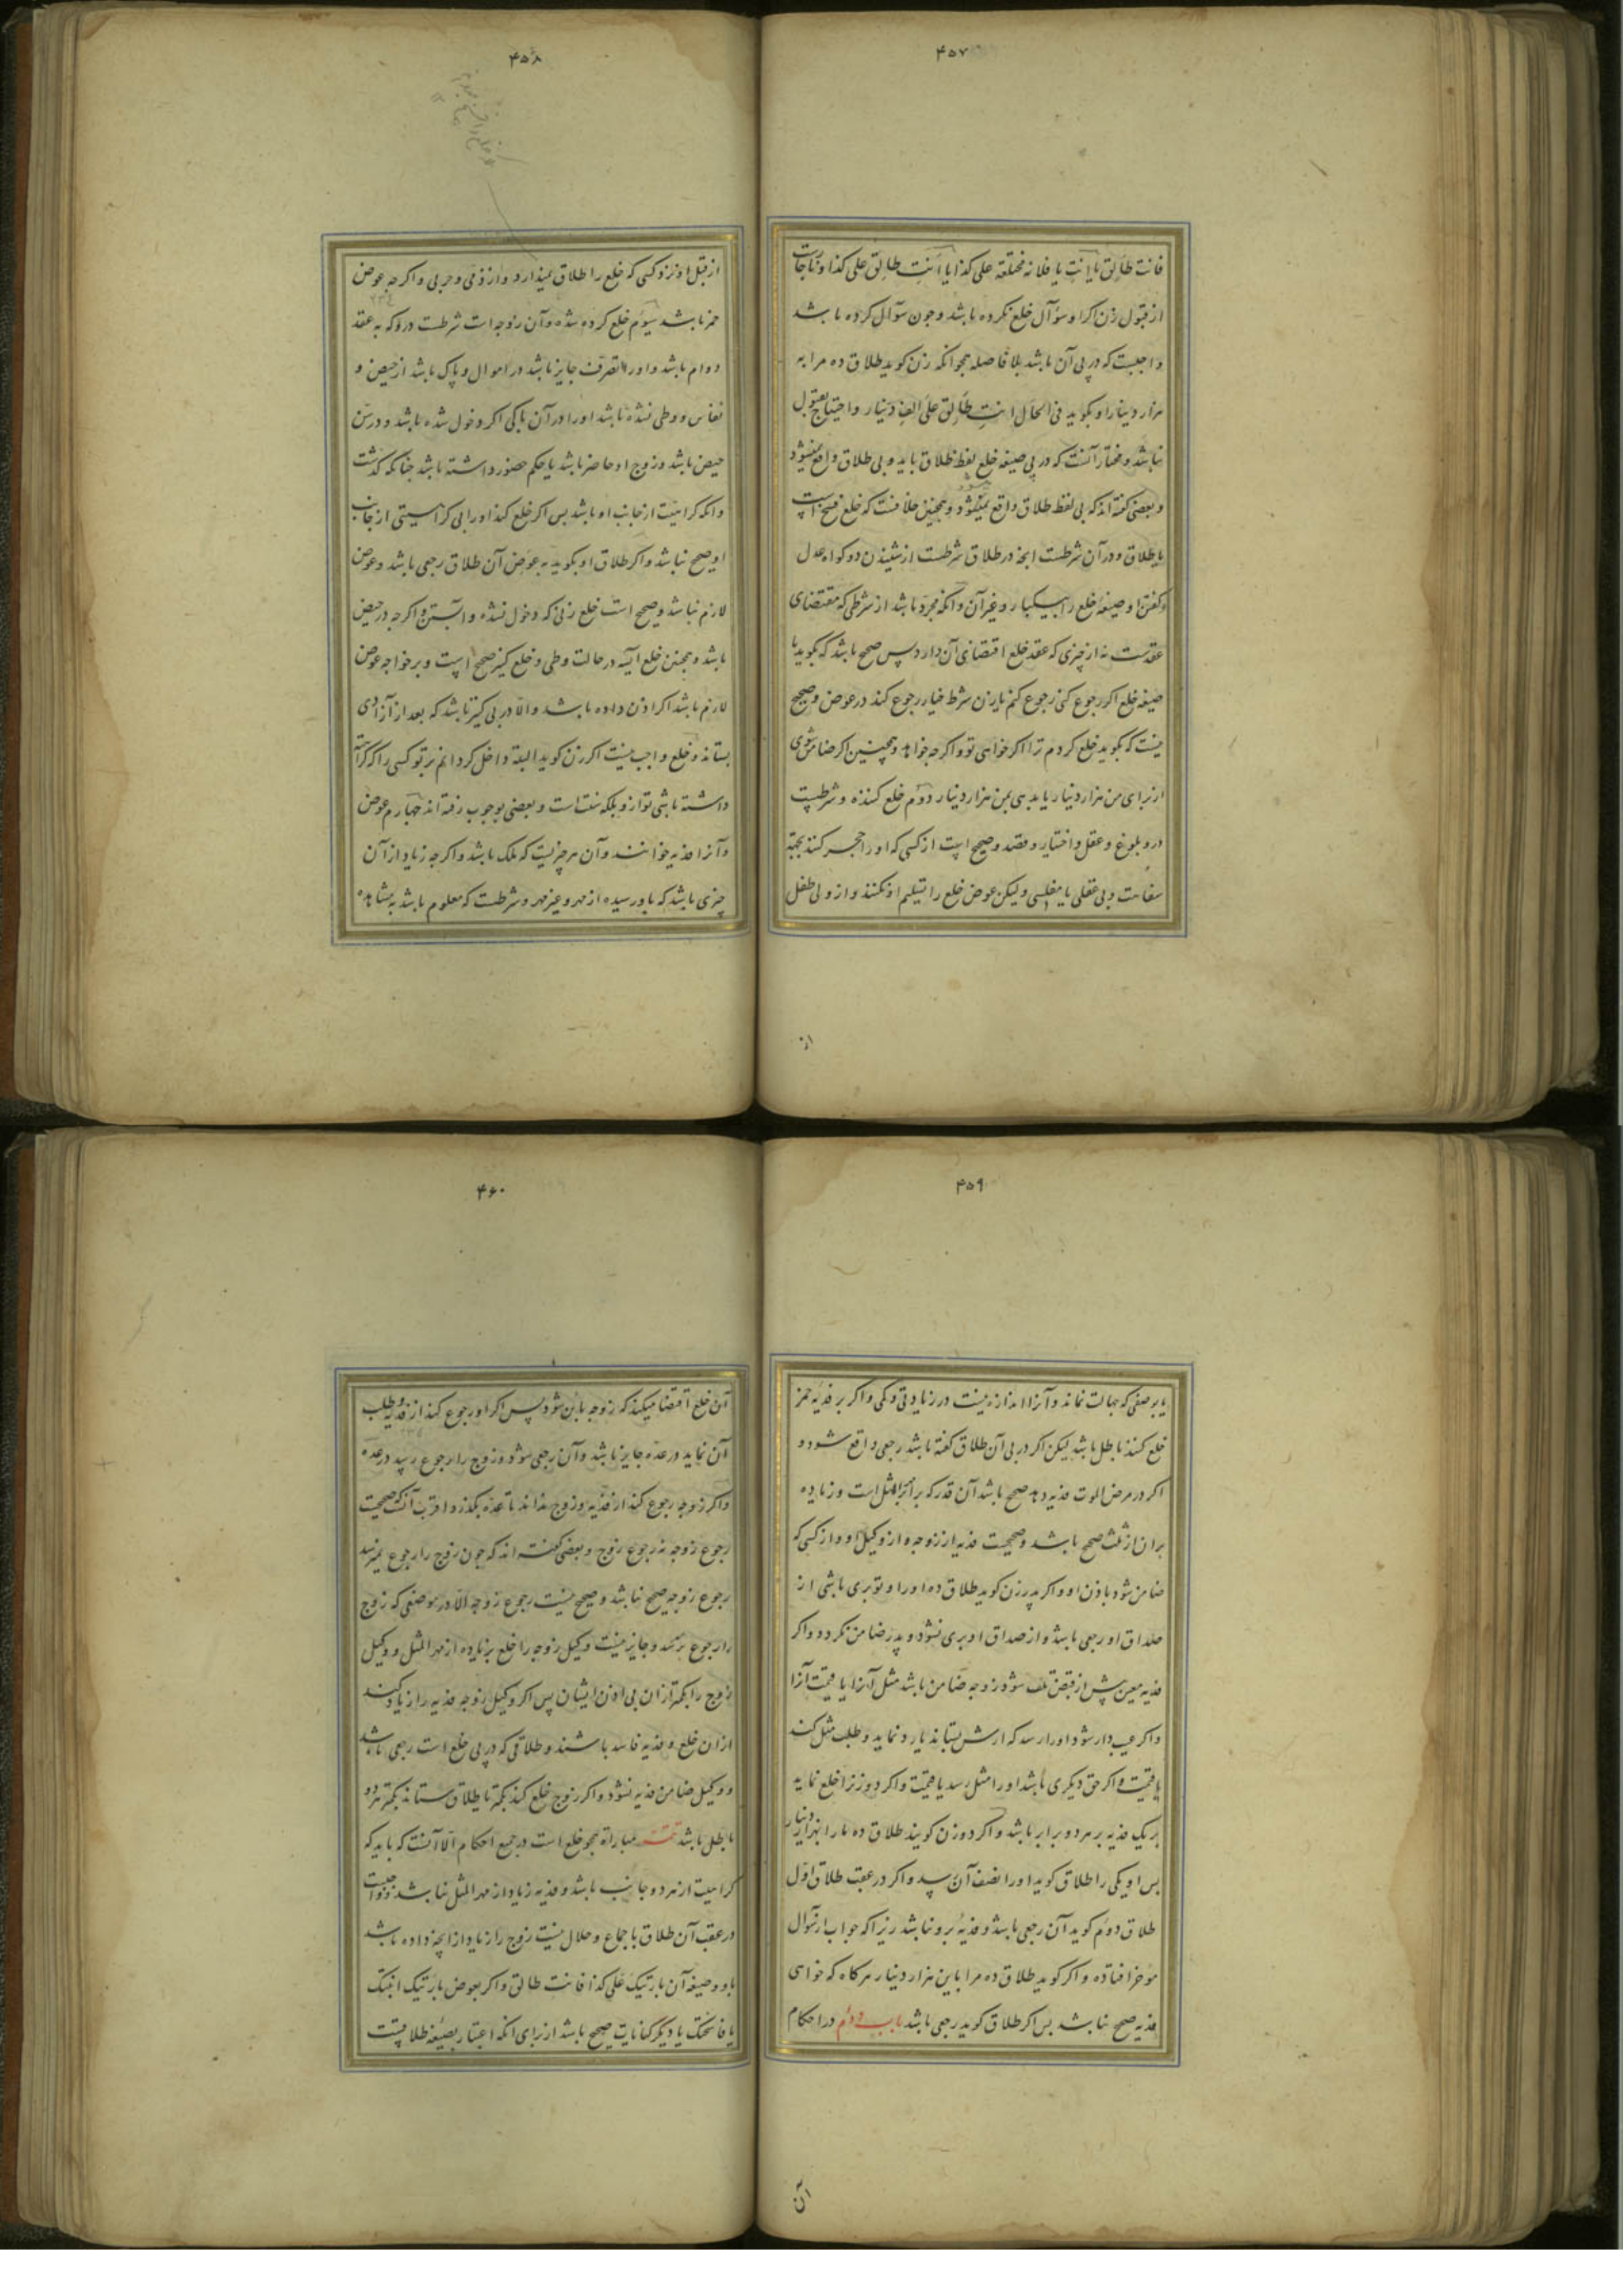 ۴۵۷
فانت طالق یا انت یا فلانه مختلعة علی کذا یا انت طالق علی کذا و ناچار است
از قبول زن اکر او سؤال خلع نکرده باشد و چون سؤال کرده باشد
واجبست که در پی آن باشد بلا فاصله همچو انکه زن کوید طلاق ده مرا به
هزار دینار او بکوید فی الحال انت طالق علی الف دینار و احتیاج بقبول
نباشد و مختار آنست که در پی صیغه خلع لفظ طلاق باید و بی طلاق واقع نمیشود
و بعضی کفته اند که بی لفظ طلاق واقع میشود و همچنین خلافست که خلع فسخ است
یا طلاق و در آن شرطست انچه در طلاق شرطست از شنیدن دو کواه عدل
و کفتن او صیغهٔ خلع را بیکبار و غیر آن و انکه مجرد باشد از شرطی که مقتضای
عقدست نه از چیزی که عقد خلع اقتضای آن دارد پس صحیح باشد که بکوید با
صیغه خلع اکر رجوع کنی رجوع کنم یا زن شرط خیار رجوع کند در عوض و صحیح
نیست که بکوید خلع کردم ترا اکر خواهی تو و اکر چه خواهد و همچنین اکر ضامن شوی
از برای من هزار دینار یا بدهی بمن هزار دینار دوم خلع کننده و شرطست
درو بلوغ و عقل و اختیار و قصد و صحیح است از کسی که او را حجر کنند بجهة
سفاهت و بی عقلی یا مفلسی ولیکن عوض خلع را تسلیم او نکنند و از ولی طفل
از
۴۵۸
از قبل او نزد کسی که خلع را طلاق نمیدارد و از ذمی و حربی و اکر چه عوض
خمر باشد سیوم خلع کرده شده و آن زوجه است شرطست درو که به عقد
دوام باشد و او را تصرف جایز باشد در اموال و پاک باشد از حیض و
نفاس و وطی نشده باشد او را در آن پاکی اکر دخول شده باشد و در سن
حیض باشد و زوج او حاضر باشد یا حکم حضور داشته باشد چنانکه کذشت
و انکه کراهیت از جانب او باشد پس اکر خلع کند او را بی کراهیتی از جانب
او صحیح نباشد و اکر طلاق او بکوید به عوض آن طلاق رجعی باشد و عوض
لازم نباشد و صحیح است خلع زنی که دخول نشده و آبستن و اکر چه در حیض
باشد و همچنین خلع آیسه در حالت وطی و خلع کنیز صحیح است و بر خواجه عوض
لازم باشد اکر اذن داده باشد و الا در پی کنیز باشد که بعد از آزادی
بستاند و خلع واجب نیست اکر زن کوید البته داخل کردانم بر تو کسی را که کراهت
داشته باشی تو ازو بلکه سنت است و بعضی بوجوب رفته اند چهارم عوض
و آنرا فدیه خوانند و آن هر چیزیست که ملک باشد و اکر چه زیاد از آن
چیزی باشد که باو رسیده از مهر و غیر مهر و شرطست که معلوم باشد بمشاهده
۴۵۹
یا بر صفتی که جهالت نماند و آنرا اندازه نیست در زیادتی و کمی و اکر بر فدیه خمر
خلع کنند باطل باشد لیکن اکر در پی آن طلاق کفته باشد رجعی واقع شود و
اکر در مرض الموت فدیه دهد صحیح باشد آن قدر که برابر مهر المثل است و زیاده
بر ان از ثلث صحیح باشد و صحیحست فدیه از زوجه و از وکیل او و از کسی که
ضامن شود باذن او و اکر پدر زن کوید طلاق ده او را و تو بری باشی از
صداق او رجعی باشد و از صداق او بری نشود و پدر ضامن نکردد و اکر
فدیه معین پیش از قبض تلف شود زوجه ضامن باشد مثل آنرا یا قیمت آنرا
و اکر عیب دار شود او را رسد که ارش بستاند یا رد نماید و طلب مثل کند
یا قیمت و اکر حق دیکری باشد او را مثل رسد یا قیمت و اکر دو زن را خلع نماید
بر یک فدیه بر هر دو برابر باشد و اکر دو زن کویند طلاق ده ما را بهزار دینار
پس او یکی را طلاق کوید او را نصف آن رسد و اکر در عقب طلاق اول
طلاق دوم کوید آن رجعی باشد و فدیه برو نباشد زیرا که جواب از سؤال
موخر افتاده و اکر کوید طلاق ده مرا باین هزار دینار هرکاه که خواهی
فدیه صحیح نباشد پس اکر طلاق کوید رجعی باشد باب دوم در احکام
آن
۴۶۰
آن خلع اقتضا میکند که زوجه باین شود پس اکر او رجوع کند از فدیه و طلب
آن نماید در عده جایز باشد و آن رجعی شود و زوج را رجوع رسد در عده
و اکر زوجه رجوع کند از فدیه و زوج نداند تا عده بکذرد اقرب آنکه صحیحست
رجوع زوجه نه رجوع زوج و بعضی کفته اند که چون زوج را رجوع نمیرسد
رجوع زوجه صحیح نباشد و صحیح نیست رجوع زوجه الا در موضعی که زوج
را رجوع رسد و جایز نیست وکیل زوجه را خلع بزیاده از مهر المثل و وکیل
زوج را بکمتر از ان بی اذن ایشان پس اکر وکیل زوجه فدیه را زیاد کند
از ان خلع و فدیه فاسد باشند و طلاقی که در پی خلع است رجعی باشد
و وکیل ضامن فدیه نشود و اکر وکیل زوج خلع کند بکمتر یا طلاق ستاند بکمتر هر دو
باطل باشد تتمه مباراة همچو خلع است در جمیع احکام الا آنست که باید که
کراهیت از هر دو جانب باشد و فدیه زیاد از مهر المثل نباشد و واجبست
در عقب آن طلاق باجماع و حلال نیست زوج را زیاد از انچه داده باشد
باو و صیغه آن بارئتک علی کذا فانت طالق و اکر بعوض بارئتک ابنتک
یا فاسختک یا دیکر کنایات صحیح باشد از برای انکه اعتبار بصیغه طلاقست